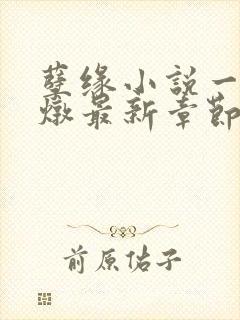 孽缘小説一
燉最新章節
前原佑子